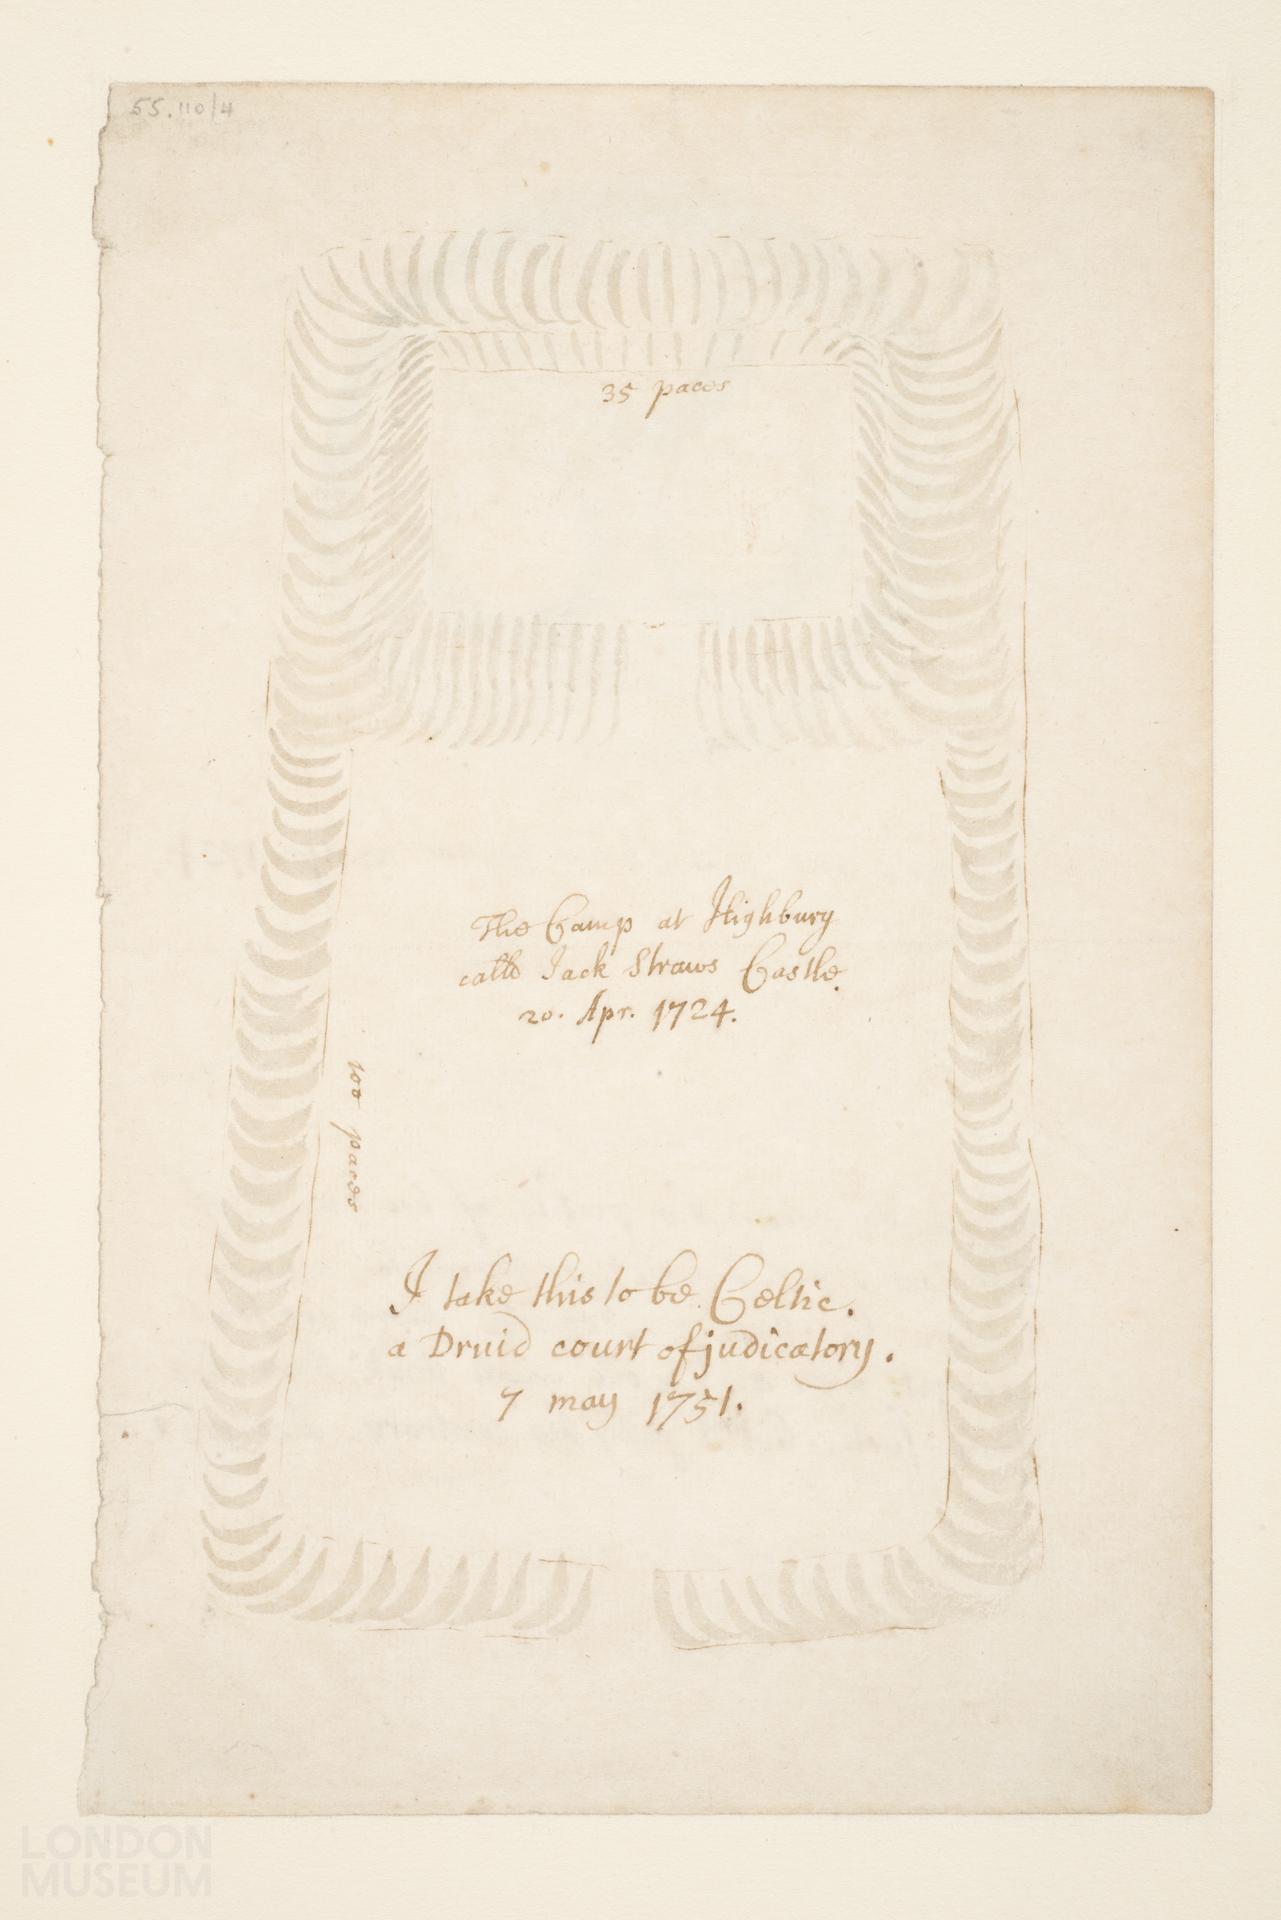 55.110/4
35 paces
The Camp at Highbury
calld Jack Straws Castle.
20. Apr. 1724.
100 paces
I take this to be Celtic.
a Druid court of judicatory.
7 may 1751.
LONDON
MUSEUM